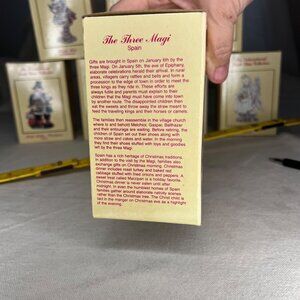 The Three Magi
Spain
Gifts are brought in Spain on January 6th by the
three Magi. On January 5th, the eve of Epiphany,
elaborate celebrations herald their arrival. In rural
areas, villagers carry rattles and bells and form a
procession to the edge of town in order to meet the
three kings as they ride in. These efforts are
always futile and parents must explain to their
children that the Magi must have come into town
by another route. The disappointed children then
eat the sweets and throw away the straw meant to
feed the traveling kings and their horses or camels.
The families then reassemble in the village church
where to and behold Melchior, Gaspar, Balthazar
and their entourage are waiting. Before retiring, the
children of Spain set out their shoes along with
more straw and cakes and water. In the morning
they find their shoes stuffed with toys and goodies
left by the three Magi.
Spain has a rich heritage of Christmas traditions.
In addition to the visit by the Magi, families also
exchange gifts on Christmas morning. Christmas
dinner includes roast turkey and baked red
cabbage stuffed with fried onions and peppers. A
sweet treat called Mazipan is a holiday favorite.
Christmas dinner is never eaten until after
midnight. In even the humblest homes of Spain
families gather around elaborate nativity scenes
rather than the Christmas tree. The Christ child is
laid in the manger on Christmas eve as a highlight
of the evening.